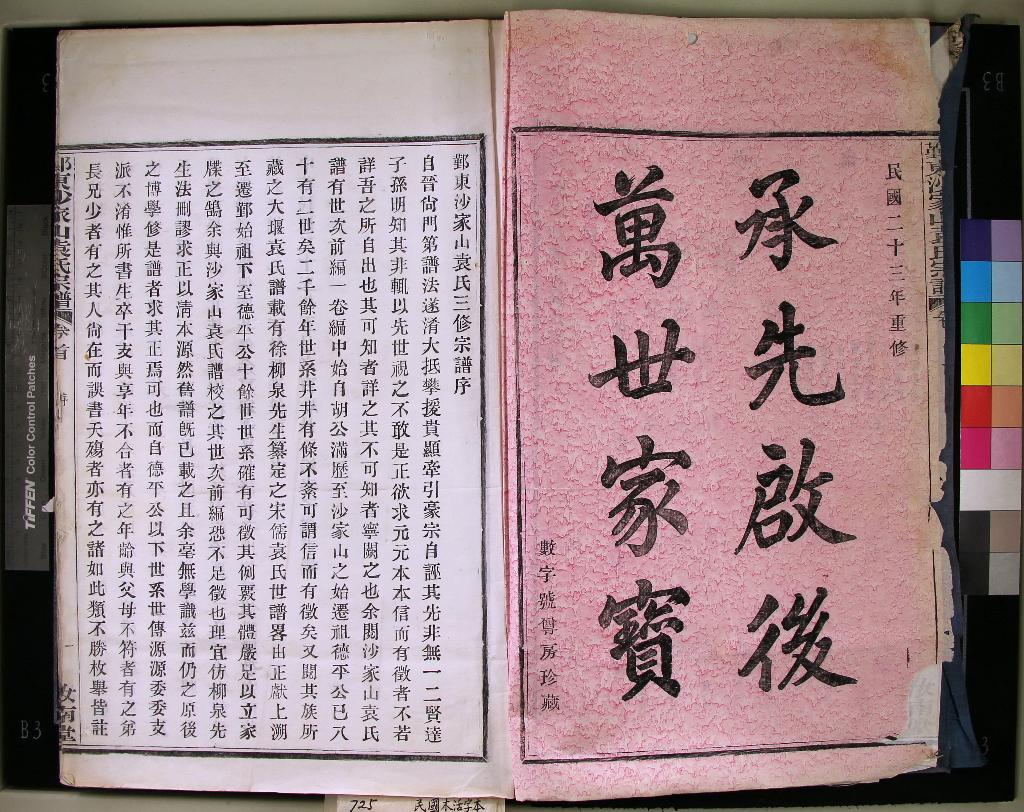 民國二十三年重修
承先啟後
萬世家寶
數字號 房珍藏
鄞東沙家山袁氏三修宗譜序
自晉尙門第譜法遂淆大抵攀援貴顯牽引豪宗自誣其先非無一二賢達
子孫明知其非輒以先世視之不敢是正欲求元元本本信而有徵者不若
詳吾之所自出也其可知者詳之其不可知者寧闕之也余閱沙家山袁氏
譜有世次前編一卷編中始自胡公滿歷至沙家山之始遷祖德平公已八
十有二世矣二千餘年世系井井有條不紊可謂信而有徵矣又閱其族所
藏之大堰袁氏譜載有徐柳泉先生纂定之宋儒袁氏世譜畧出正獻上溯
至遷鄞始祖下至德平公十餘世世系確有可徵其例覈其體嚴足以立家
牒之鵠余與沙家山袁氏譜校之其世次前編恐不足徵也理宜仿柳泉先
生法刪謬求正以淸本源然舊譜旣已載之且余毫無學識兹而仍之原後
之博學修是譜者求其正焉可也而自德平公以下世系世傳源源委委支
派不淆惟所書生卒干支與享年不合者有之年齡與父母不符者有之弟
長兄少者有之其人尙在而誤書夭殤者亦有之諸如此類不勝枚舉皆註
鄞東沙家山袁氏宗譜
卷首
一
汝南堂
TIFFEN Color Control Patches
B3
725 民國木活字本